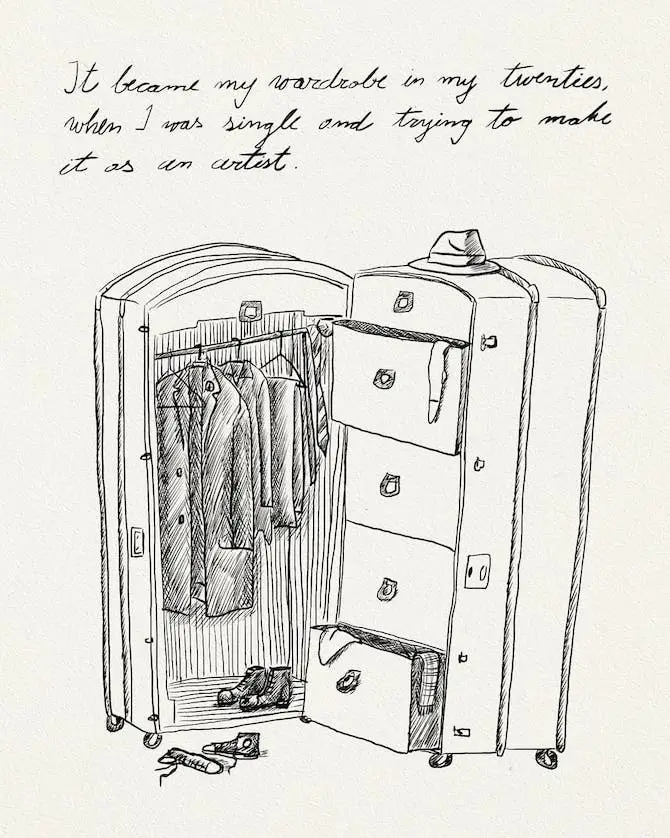 It became my wardrobe in my twenties,
when I was single and trying to make
it as an artist.